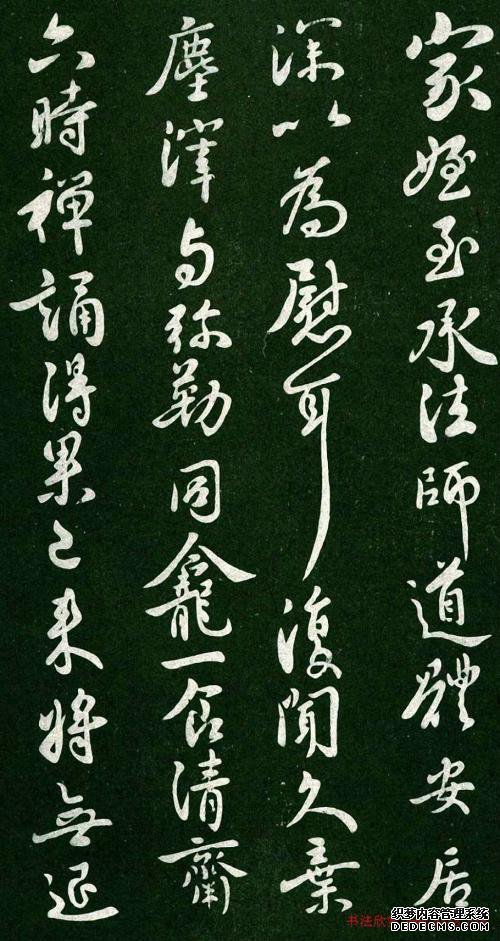 家姪至承法師道體安居
深以為慰耳復聞久棄
塵滓与弥勒同龕一食清齋
六時禪誦得果已来将無退
书法欣
织梦内容管理系统
DEDECMS.COM